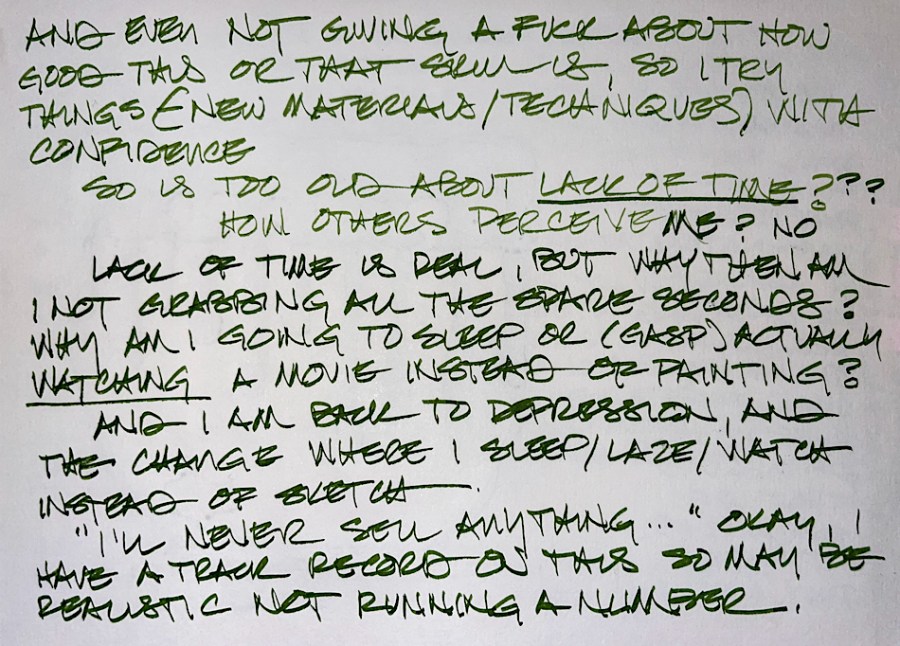 AND EVEN NOT GIVING A FUCK ABOUT HOW
GOOD THIS OR THAT SKILL IS, SO I TRY
THINGS (NEW MATERIALS/TECHNIQUES) WITH
CONFIDENCE
SO IS TOO OLD ABOUT LACK OF TIME???
HOW OTHERS PERCEIVE ME? NO
LACK OF TIME IS REAL, BUT WHY THEN AM
I NOT GRABBING ALL THE SPARE SECONDS?
WHY AM I GOING TO SLEEP OR (GASP) ACTUALLY
WATCHING A MOVIE INSTEAD OF PAINTING?
AND I AM BACK TO DEPRESSION, AND
THE CHANGE WHERE I SLEEP/LAZE/WATCH
INSTEAD OF SKETCH.
"I'LL NEVER SELL ANYTHING..." OKAY, I
HAVE A TRACK RECORD ON THIS SO MAY BE
REALISTIC NOT RUNNING A NUMBER.